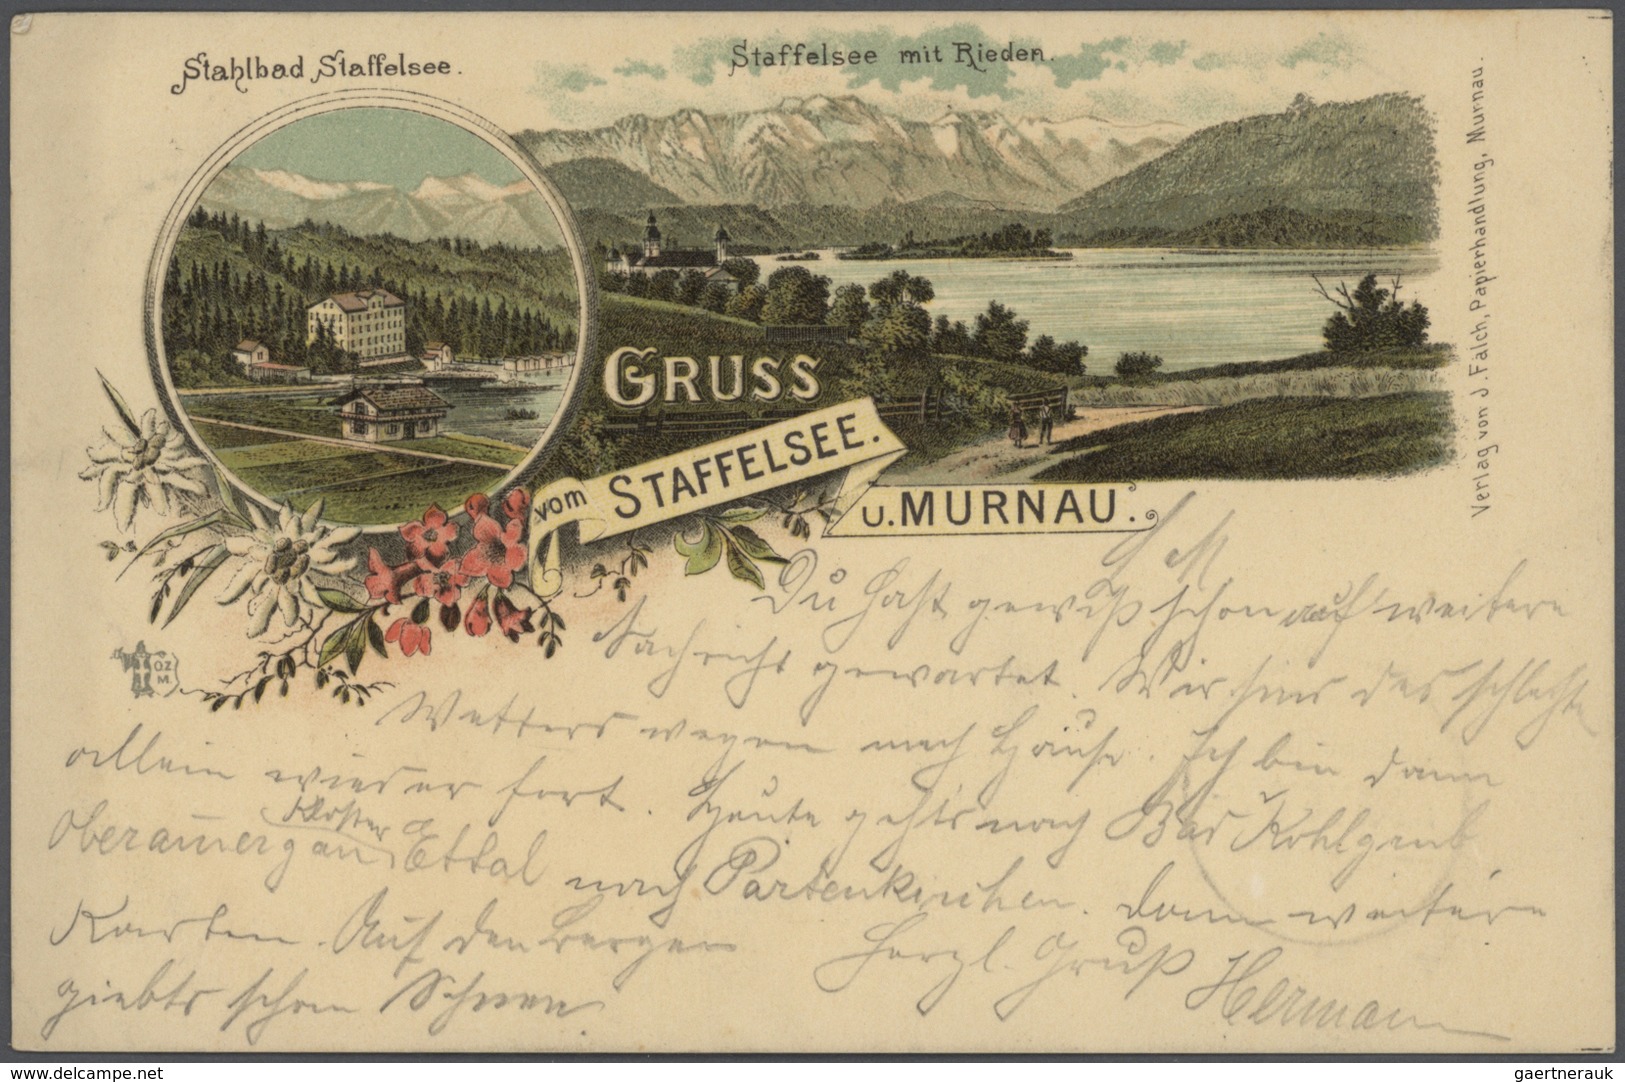 Stahlbad Staffelsee.
Staffelsee mit Rieden.
Verlag von J. Falch, Papierhandlung, Murnau.
GRUSS
vom STAFFELSEE.
u. MURNAU.
OZ
M.
Du hast gewiß schon auf weitere
Nachricht gewartet. Wir sind des schlechten
Wetters wegen nach Hause. Ich bin dann
allein wieder fort. Heute gehts nach Bad Kohlgrub
Kloster
Oberammergau Ettal nach Partenkirchen. Dann weitere
Karten. Auf den Bergen Herzl. Gruß
giebts schon Schnee. Herman
www.delcampe.net
gaertnerauk